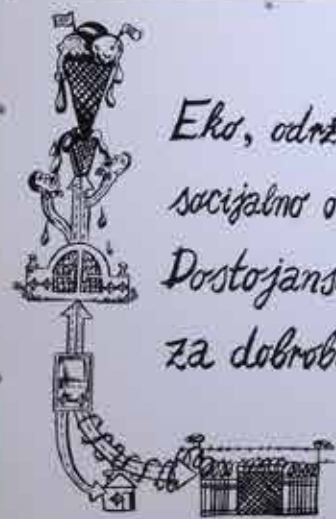 Eko, održ
socijalno o
Dostojans
za dobrob